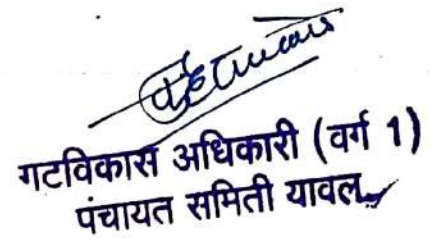 गटविकास अधिकारी (वर्ग 1)
पंचायत समिती यावल